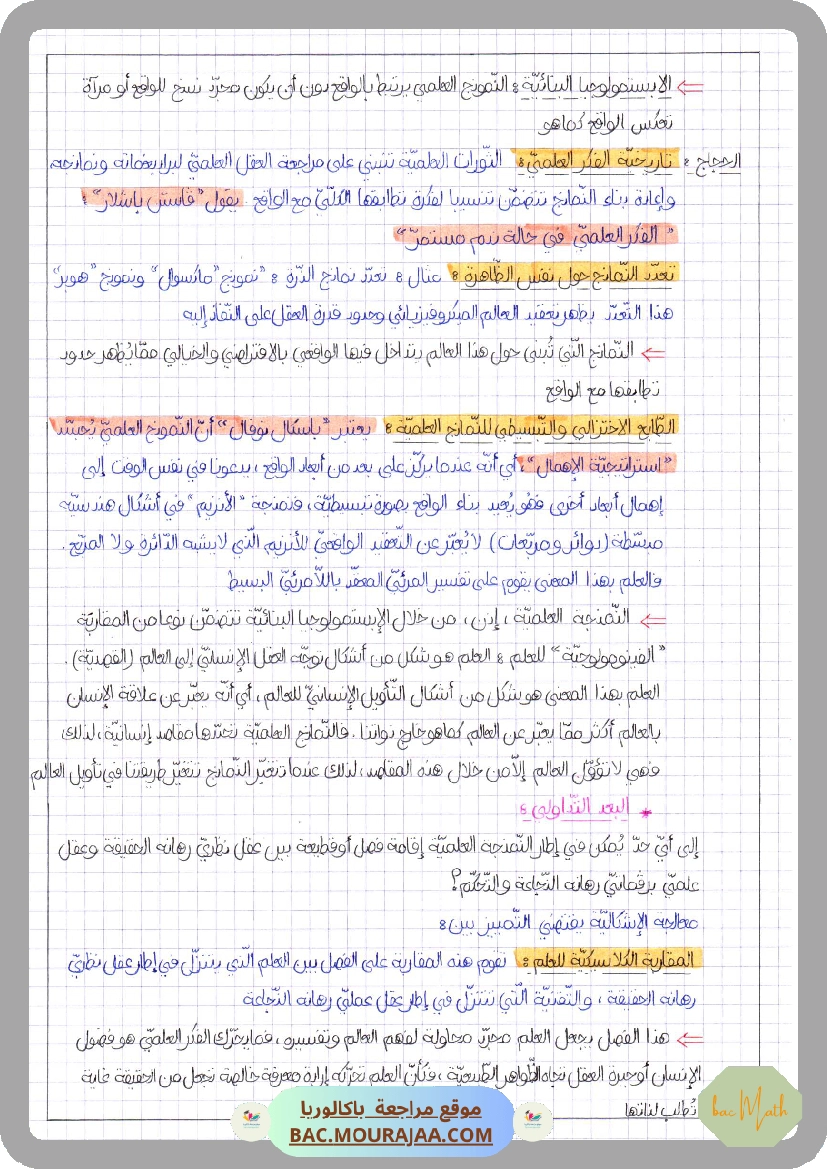 ⇐ الابستمولوجيا البنائيّة : النّموذج العلمي يرتبط بالواقع دون أن يكون مجرّد نسخ للواقع أو مرآة
تعكس الواقع كما هو
الحجاج : تاريخيّة الفكر العلميّ : الثّورات العلميّة تنبني على مراجعة العقل العلميّ لبراديغماته ونماذجه
وإعادة بناء النّماذج تتضمّن تنسيبا لفكرة تطابقها الكلّيّ مع الواقع. يقول "قاستن باشلار" :
"الفكر العلميّ في حالة ندم مستمرّ"
تعدّد النّماذج حول نفس الظّاهرة : مثال : تعدّد نماذج الذّرة : "نموذج "ماكسوال" ونموذج "هوبر"
هذا التّعدّد يظهر تعقيد العالم الميكروفيزيائي وحدود قدرة العقل على النّفاذ إليه
⇐ النّماذج الّتي تُبنى حول هذا العالم يتداخل فيها الواقعي بالافتراضي والخيالي ممّا يُظهر حدود
تطابقها مع الواقع
الطّابع الاختزالي والتّبسيطي للنّماذج العلميّة : يعتبر "باسكال نوفال" أنّ النّموذج العلميّ يُجسّد
"استراتيجيّة الإهمال"، أي أنّه عندما يركّز على بعد من أبعاد الواقع ، يدعونا في نفس الوقت إلى
إهمال أبعاد أخرى فهو يُعيد بناء الواقع بصورة تبسيطيّة ، فنمذجة "الأنزيم" في أشكال هندسيّة
مبسّطة (دوائر ومربّعات) لا يُعبّر عن التّعقيد الواقعيّ للأنزيم الّذي لا يشبه الدّائرة ولا المربّع.
فالعلم بهذا المعنى يقوم على تفسير المرئيّ المعقّد باللاّمرئيّ البسيط
⇐ النّمذجة العلميّة ، إذن ، من خلال الإبستمولوجيا البنائيّة تتضمّن نوعا من المقاربة
"الفينومولوجيّة" للعلم : العلم هو شكل من أشكال توجّه العقل الإنسانيّ إلى العالم (القصديّة).
العلم بهذا المعنى هو شكل من أشكال التّأويل الإنسانيّ للعالم ، أي أنّه يعبّر عن علاقة الإنسان
بالعالم أكثر ممّا يعبّر عن العالم كما هو خارج ذواتنا . فالنّماذج العلميّة تحدّدها مقاصد إنسانيّة ، لذلك
فهي لا تؤوّل العالم إلاّ من خلال هذه المقاصد، لذلك عندما تتغيّر النّماذج تتغيّر طريقتنا في تأويل العالم
* البعد التّداولي :
إلى أيّ حدّ يُمكن في إطار النّمذجة العلميّة إقامة فصل أو قطيعة بين عقل نظريّ رهانه الحقيقة وعقل
علميّ برقماتيّ رهانه النّجاعة والتّحكّم؟
معالجة الإشكاليّة يقتضي التّمييز بين :
المقاربة الكلاسيكيّة للعلم : تقوم هذه المقاربة على الفصل بين العلم الّذي يتنزّل في إطار عقل نظريّ
رهانه الحقيقة ، والتّقنيّة الّتي تتنزّل في إطار عقل عمليّ رهانه النّجاعة
⇐ هذا الفصل يجعل العلم مجرّد محاولة لفهم العالم وتفسيره ، فما يحرّك الفكر العلميّ هو فضول
الإنسان أو حيرة العقل تجاه الظّواهر الطّبيعيّة ، فكأنّ العلم تحرّكه إرادة معرفة خالصة تجعل من الحقيقة غاية
تُطلب لذاتها
موقع مراجعة باكالوريا
BAC.MOURAJAA.COM
bac Math